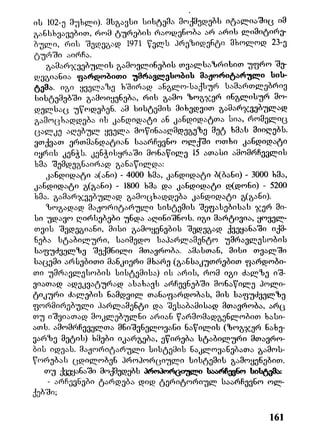 ის 102-ე მუხლი). მსგავსი სისტემა მოქმედებს იტალიაშიც იმ
განსხვავებით, რომ ტურების რაოდენობა არ არის ლიმიტირე-
ბული, რის შედეგად 1971 წელს პრეზიდენტი მხოლოდ 23-ე
ტურში აირჩა.
გამარჯვებულის გამოვლინების თვალსაზრისით უფრო შე-
დეგიანია ფარდობითი უმრავლესობის მაჟორიტარული სის-
ტემა. იგი ყველაზე ხშირად ანგლო-საქსურ სამართლებრივ
სისტემებში გამოიყენება, რის გამო ზოგჯერ ინგლისურ მო-
დელსაც უწოდებენ. ამ სისტემის მიხედვით გამარჯვებულად
გამოცხადდება ის კანდიდატი ან კანდიდატთა სია, რომელიც
ცალკე აღებულ ყველა მოწინააღმდეგეზე მეტ ხმას მიიღებს.
ვთქვათ ერთმანდატიან საარჩევნო ოლქში ოთხი კანდიდატი
იყრის კენჭს. კენჭისყრაში მონაწილე 15 ათასი ამომრჩევლის
ხმა შემდეგნაირად განაწილდა:
კანდიდატი ა(ანი) - 4000 ხმა, კანდიდატი ბ(ბანი) - 3000 ხმა,
კანდიდატი გ(განი) - 1800 ხმა და კანდიდატი დ(დონი) - 5200
ხმა. გამარჯვებულად გამოცხადდება კანდიდატი გ(განი).
ზოგადად მაჟორიტარული სისტემის შეფასებისას ჯერ მი-
სი უდავო ღირსებები უნდა აღინიშნოს. იგი მარტივია, ყოველ-
თვის შედეგიანი, მისი გამოყენების შედეგად ქვეყანაში იქმ-
ნება სტაბილური, საიმედო საპარლამენტო უმრავლესობის
საფუძველზე შექმნილი მთავრობა. ამასთან, მისი თვალში
საცემი არსებითი მანკიერი მხარე (განსაკუთრებით ფარდობი-
თი უმრავლესობის სისტემისა) ის არის, რომ იგი ძალზე იშ-
ვიათად ადეკვატურად ასახავს არჩევნებში მონაწილე პოლი-
ტიკური ძალების ნამდვილ თანაფარდობას, მის საფუძველზე
ფორმირებული პარლამენტი და შესაბამისად მთავრობა, არც
თუ იშვიათად მოკლებულნი არიან წარმომადგენლობით ხასი-
ათს. ამომრჩეველთა მნიშვნელოვანი ნაწილის (ზოგჯერ ნახე-
ვარზე მეტის) ხმები იკარგება, ეწირება სტაბილური მთავრო-
ბის იდეას. მაჟორიტარული სისტემის ნაკლოვანებათა გამოს-
წორებას ცდილობენ პროპორციული სისტემის გამოყენებით.
თუ ქვეყანაში მოქმედებს პროპორციული საარჩევნო სისტემა:
- არჩევნები ტარდება დიდ ტერიტორიულ საარჩევნო ოლ-
ქებში;
161